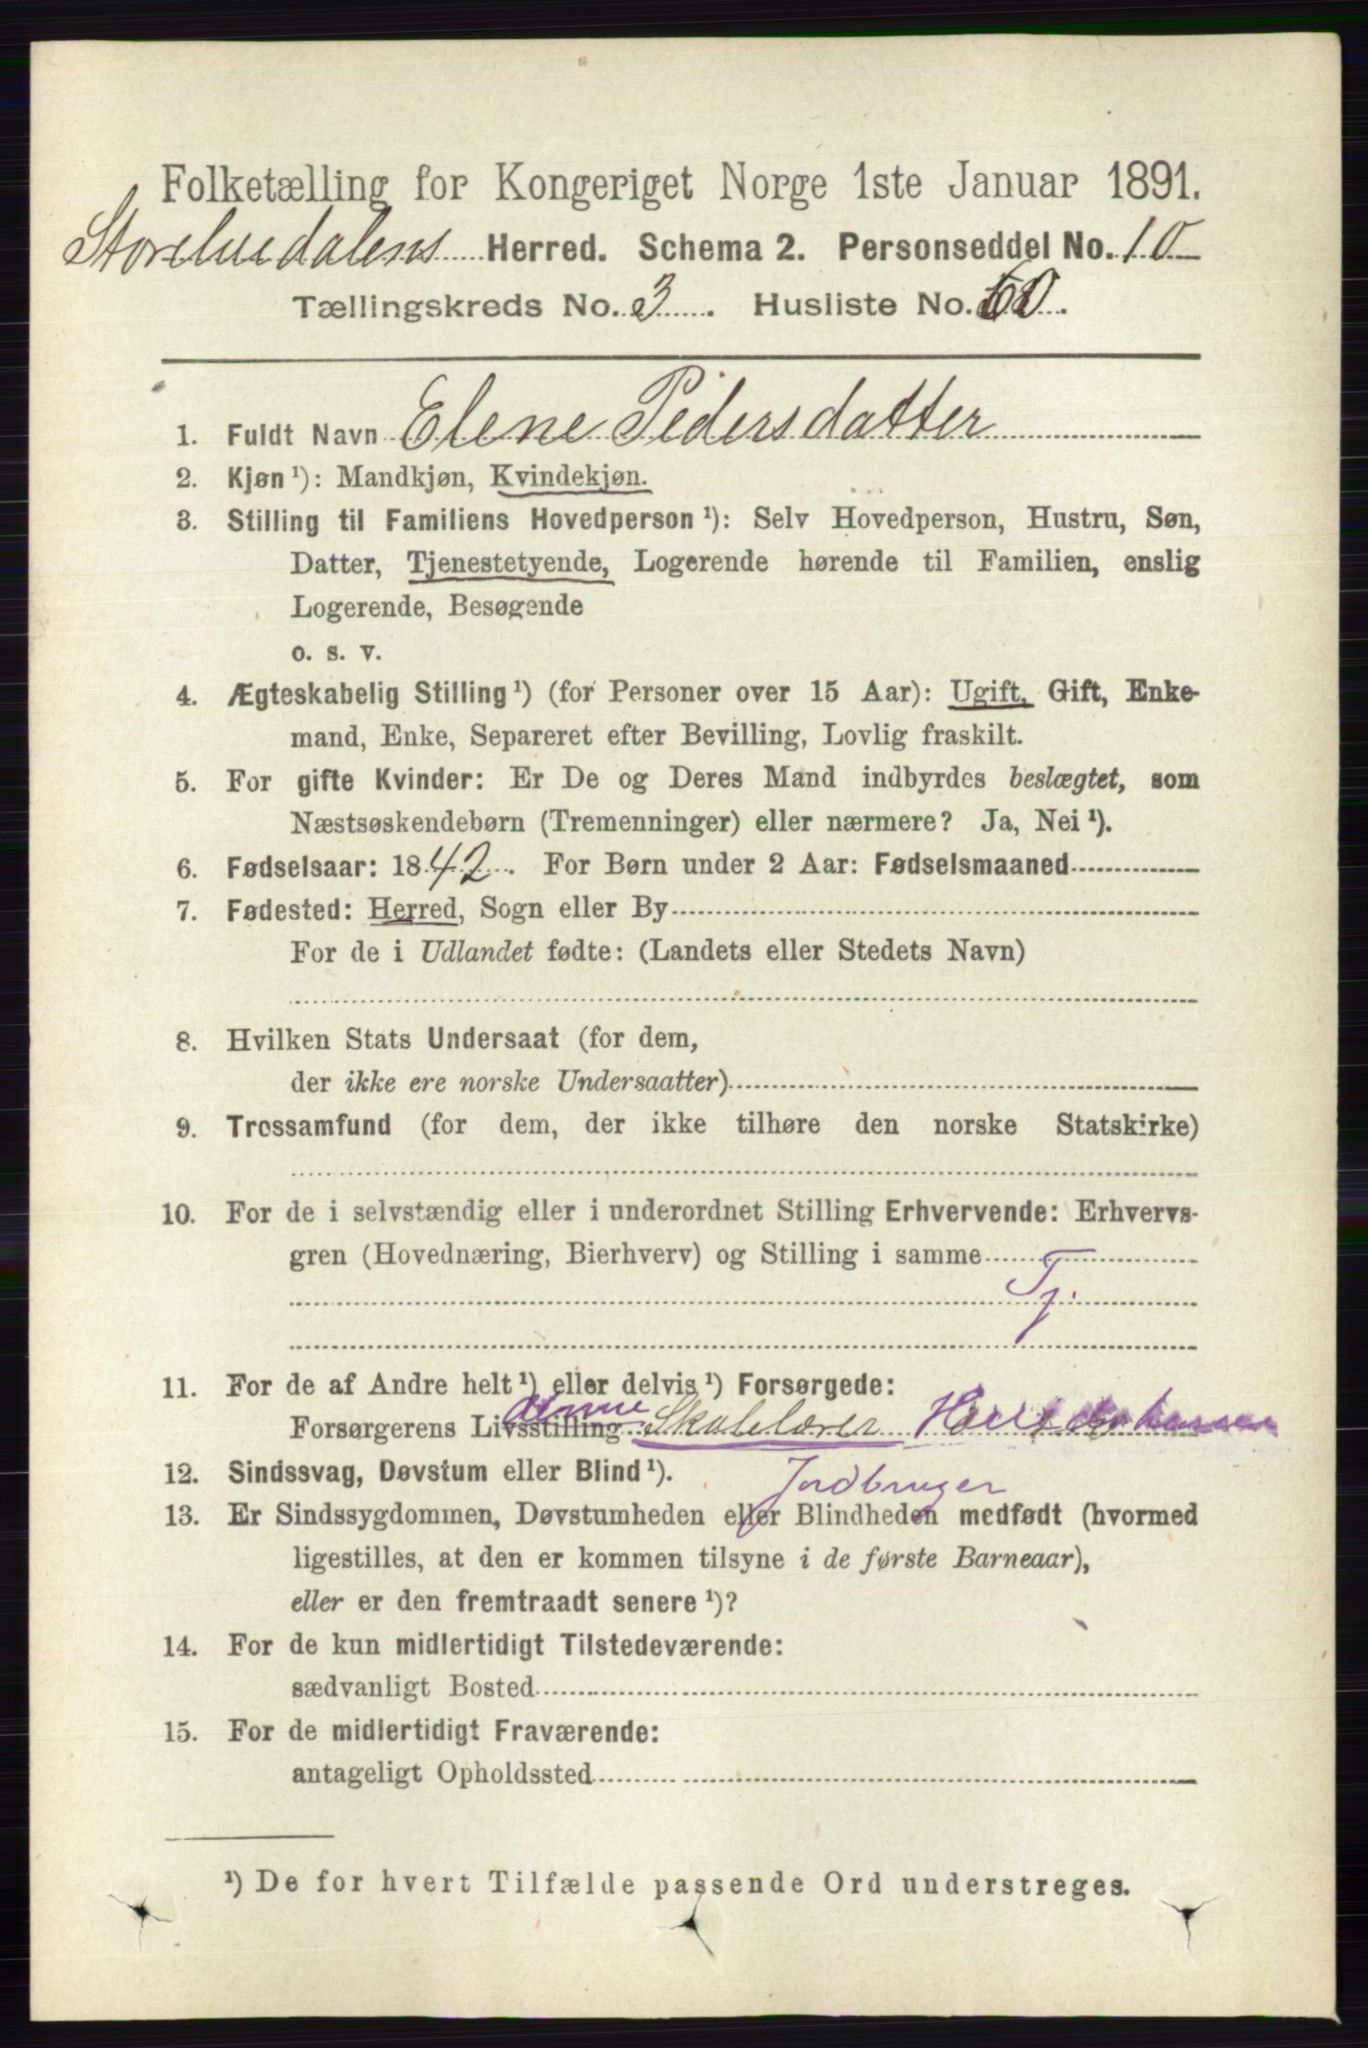 Folketælling for Kongeriget Norge 1ste Januar 1891.
Storelvedalens Herred. Schema 2. Personseddel No. 10
Tællingskreds No. 3. Husliste No. 60.
1. Fuldt Navn Elene Pedersdatter
2. Kjøn ¹): Mandkjøn, Kvindekjøn.
3. Stilling til Familiens Hovedperson ¹): Selv Hovedperson, Hustru, Søn,
Datter, Tjenestetyende, Logerende hørende til Familien, enslig
Logerende, Besøgende
o. s. v.
4. Ægteskabelig Stilling ¹) (for Personer over 15 Aar): Ugift, Gift, Enke-
mand, Enke, Separeret efter Bevilling, Lovlig fraskilt.
5. For gifte Kvinder: Er De og Deres Mand indbyrdes beslægtet, som
Næstsøskendebørn (Tremenninger) eller nærmere? Ja, Nei ¹).
6. Fødselsaar: 1842. For Børn under 2 Aar: Fødselsmaaned
7. Fødested: Herred, Sogn eller By
For de i Udlandet fødte: (Landets eller Stedets Navn)
8. Hvilken Stats Undersaat (for dem,
der ikke ere norske Undersaatter)
9. Trossamfund (for dem, der ikke tilhøre den norske Statskirke)
10. For de i selvstændig eller i underordnet Stilling Erhvervende: Erhvervs-
gren (Hovednæring, Bierhverv) og Stilling i samme
Tj.
11. For de af Andre helt ¹) eller delvis ¹) Forsørgede:
Forsørgerens Livsstilling Skolelærer
12. Sindssvag, Døvstum eller Blind ¹). Jordbruger
13. Er Sindssygdommen, Døvstumheden eller Blindheden medfødt (hvormed
ligestilles, at den er kommen tilsyne i de første Barneaar),
eller er den fremtraadt senere ¹)?
14. For de kun midlertidigt Tilstedeværende:
sædvanligt Bosted
15. For de midlertidigt Fraværende:
antageligt Opholdssted
¹) De for hvert Tilfælde passende Ord understreges.